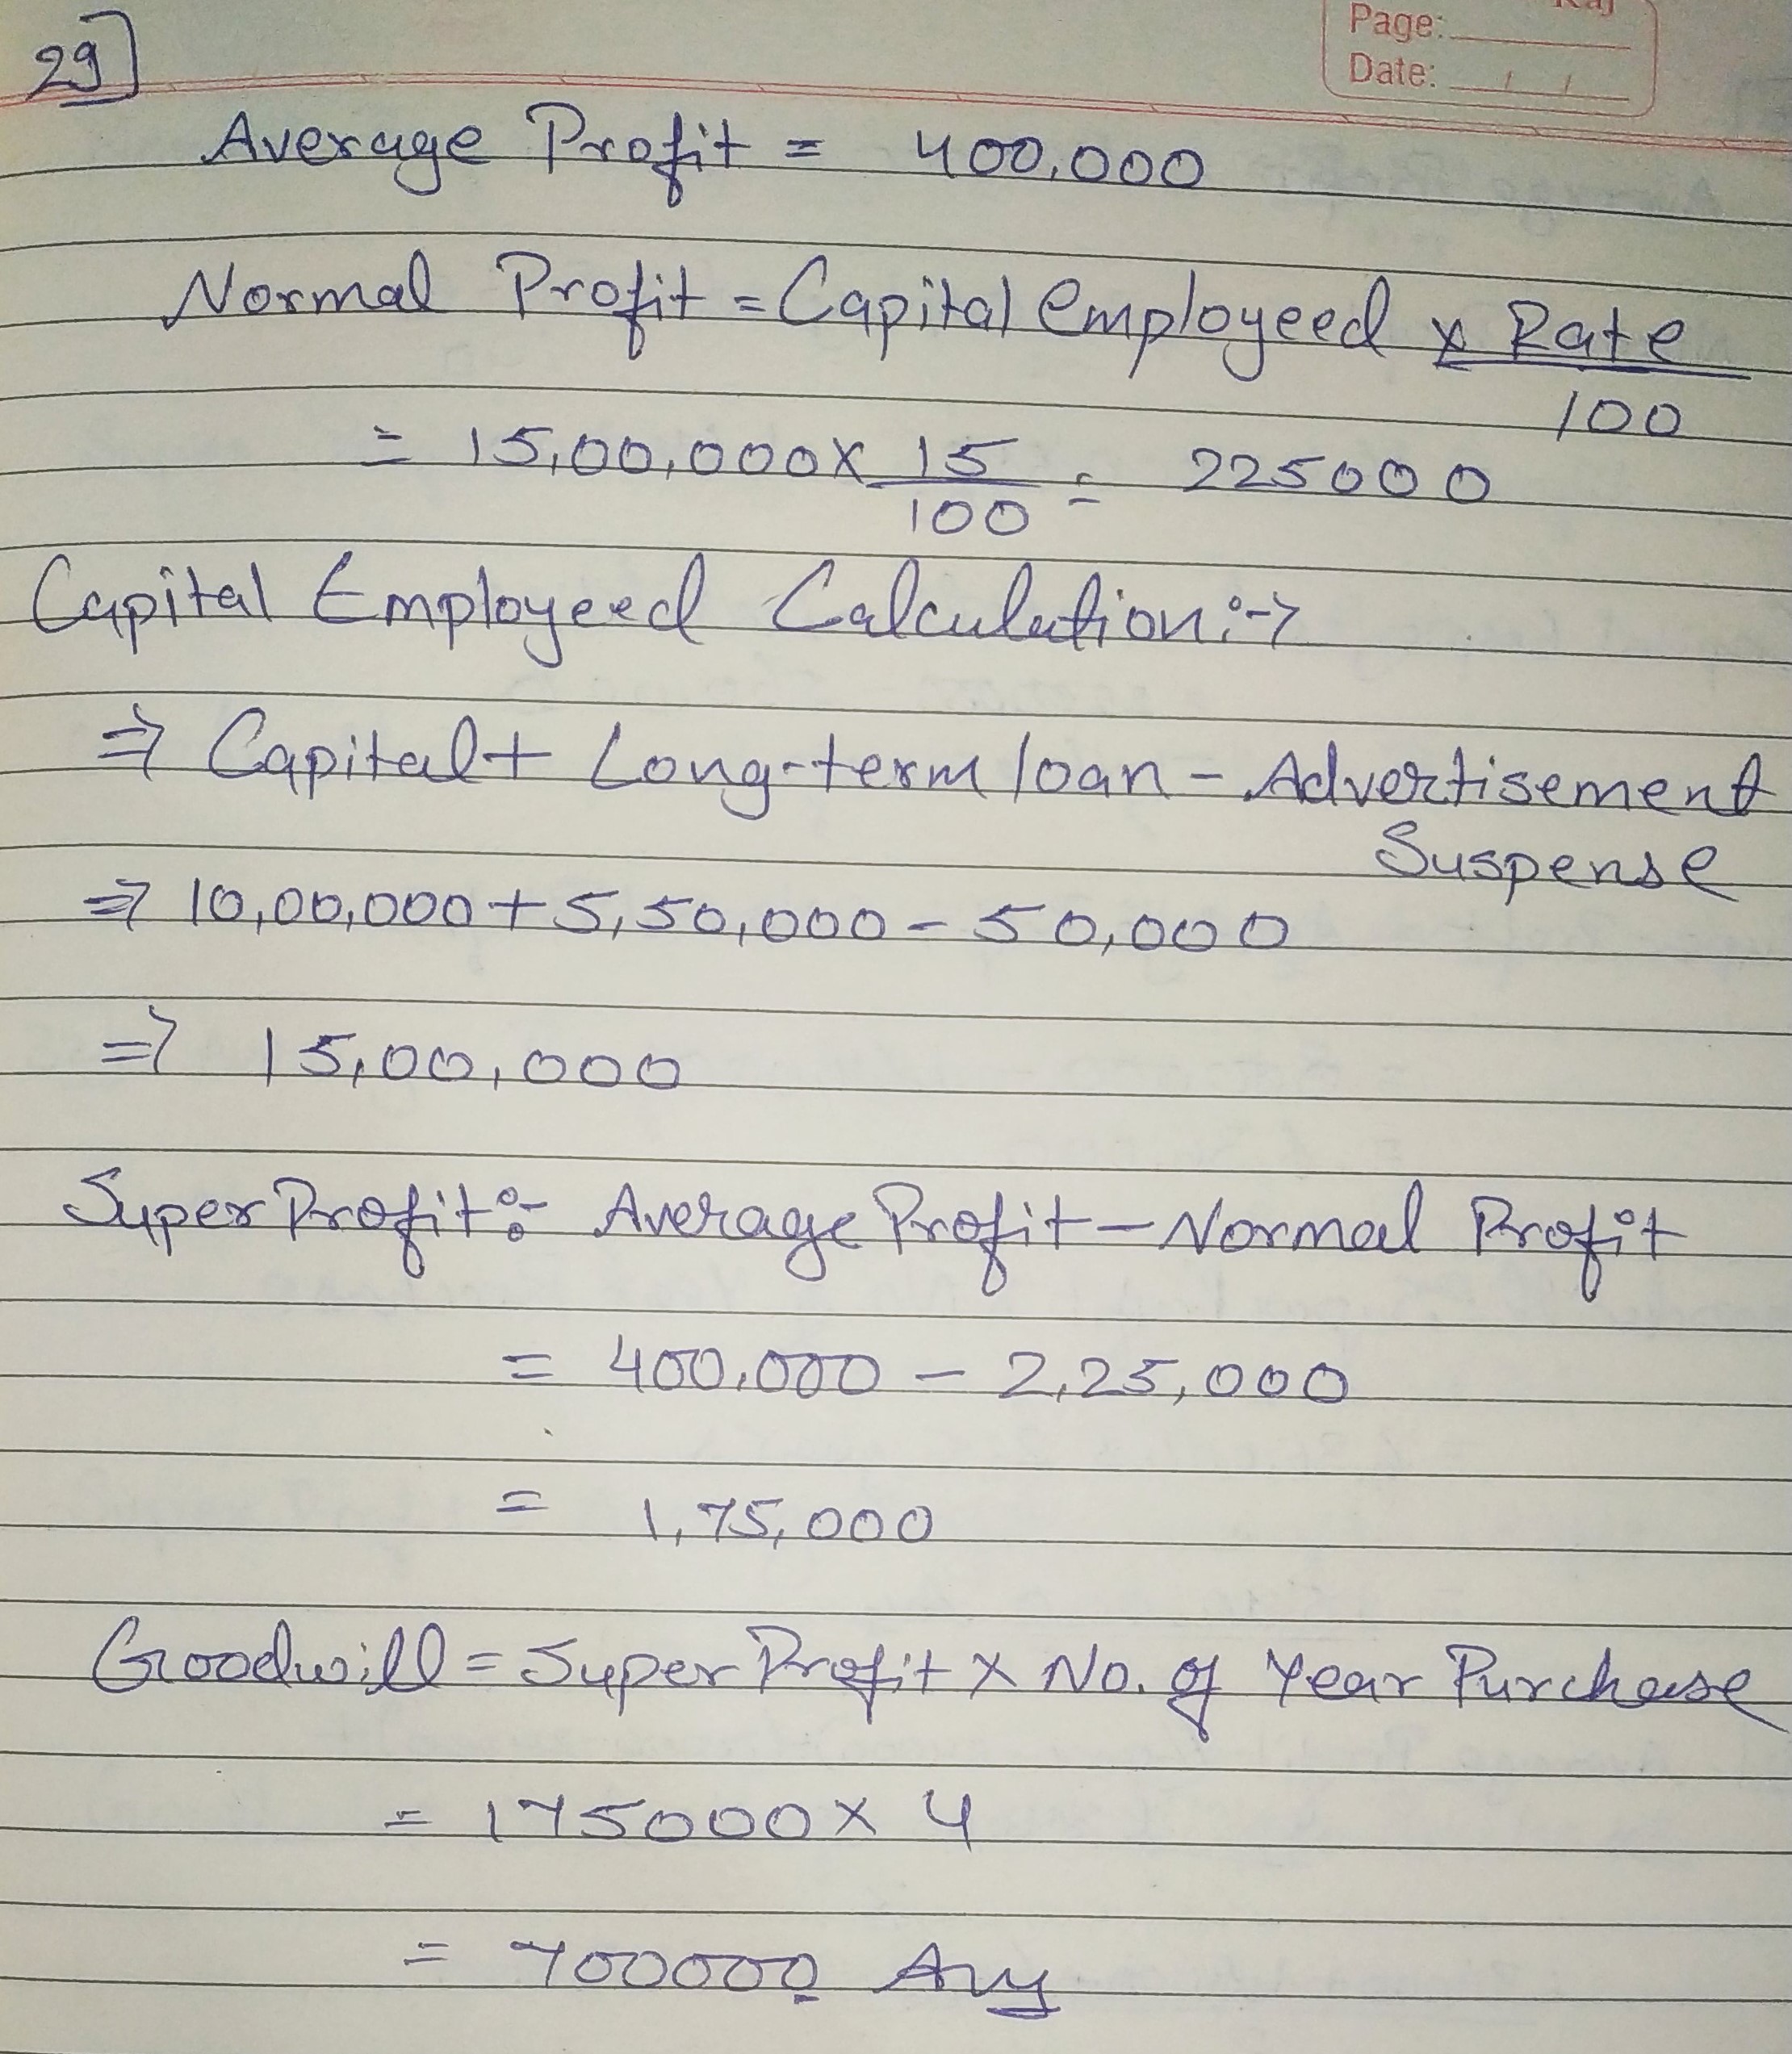 Page:
Date: / /
29]
Average Profit = 400,000
Normal Profit = Capital employeed x Rate
100
= 15,00,000 x 15 = 225000
100
Capital Employeed Calculation:->
=> Capital + Long-term loan - Advertisement
Suspense
=> 10,00,000 + 5,50,000 - 50,000
=> 15,00,000
Super Profit:- Average Profit - Normal Profit
= 400,000 - 2,25,000
= 1,75,000
Goodwill = Super Profit x No. of Year Purchase
= 175000 x 4
= 700000